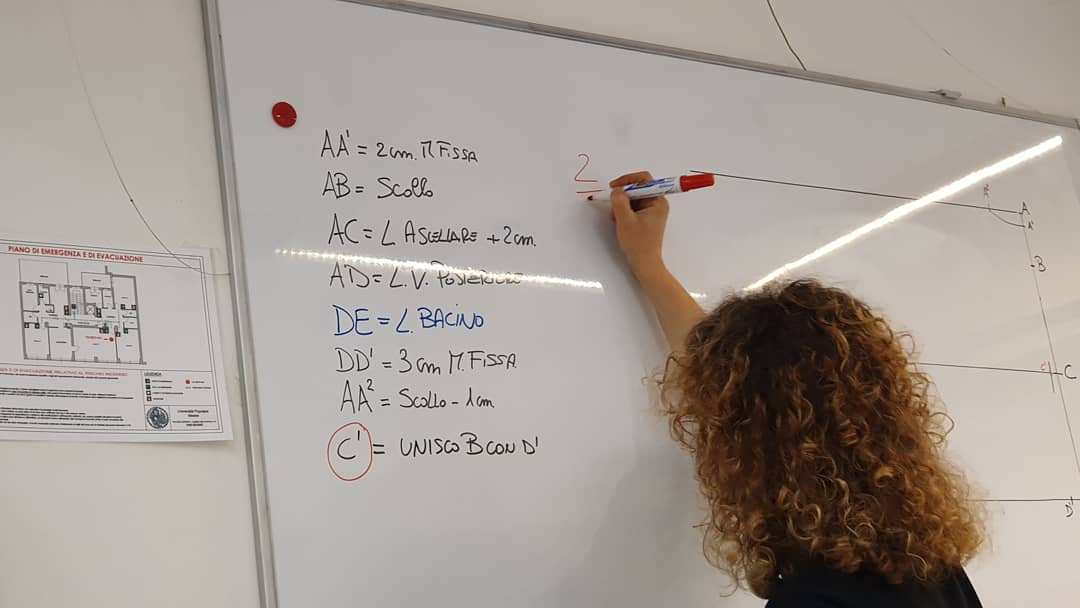 AA' = 2cm. M FISSA
AB = SCOLLO
AC = L ASCELLARE + 2cm.
A'D = L.V. POSTERIORE
DE = L. BACINO
DD' = 3cm M. FISSA
AA² = SCOLLO - 1cm
C' = UNISCO B CON D'
2
A
A'
B
C' C
D'
PIANO DI EMERGENZA E DI EVACUAZIONE
LEGENDA